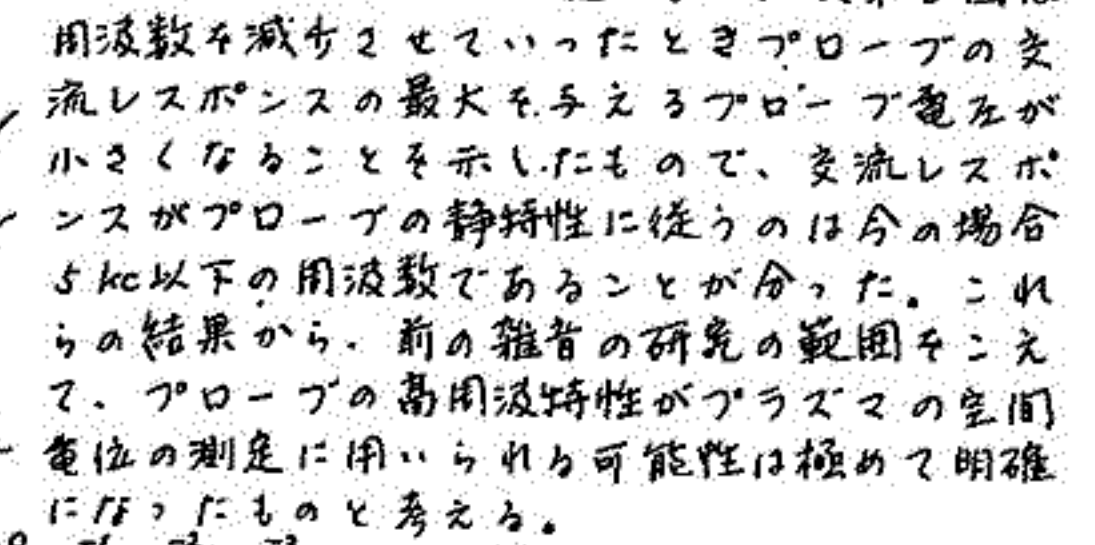 周波数を減少させていったときプローブの交
流レスポンスの最大を与えるプローブ電圧が
小さくなることを示したもので、交流レスポ
ンスがプローブの静特性に従うのは今の場合
5kc以下の周波数であることが分った。これ
らの結果から、前の雑音の研究の範囲をこえ
て、プローブの高周波特性がプラズマの空間
電位の測定に用いられる可能性は極めて明確
になったものと考える。